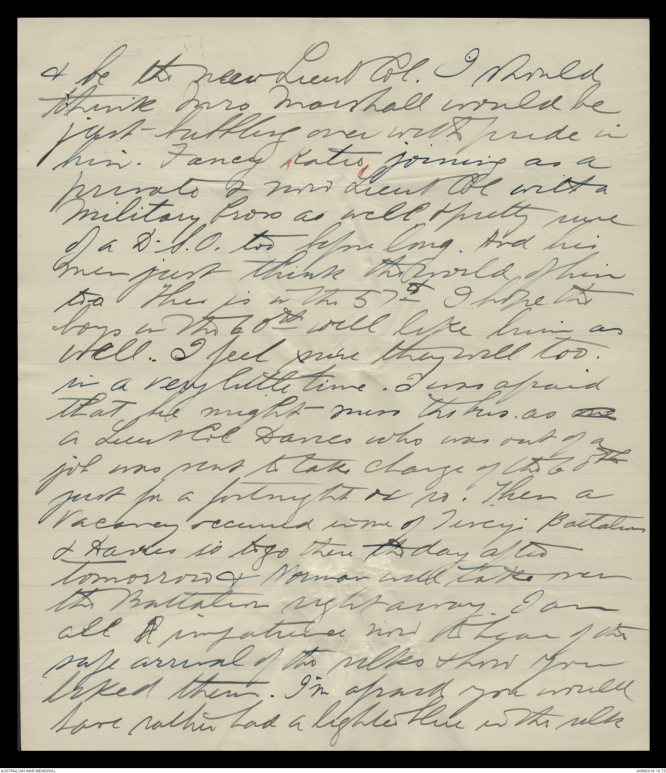 & be the new Lieut Col. I should
think Mrs Marshall would be
just bubbling over with pride in
him. Fancy Katie joining as a
private & now Lieut Col with a
Military Cross as well & pretty sure
of a D.S.O. too before long. And his
men just think the world of him
too This is in the 57th I hope the
boys in the 60th will like him as
well. I feel sure they will too.
in a very little time. I was afraid
that he might miss this as
a Lieut Col Davies who was out of a
job was sent to take charge of the 60th
just for a fortnight or so. Then a
vacancy occurred in one of Battalions
& Davies is to go there the day after
tomorrow & Norman will take over
the Battalion right away. I am
all impatience now to hear of the
safe arrival of the silks & how you
liked them. I'm afraid you would
have rather had a lighter blue in the silk
AUSTRALIAN WAR MEMORIAL